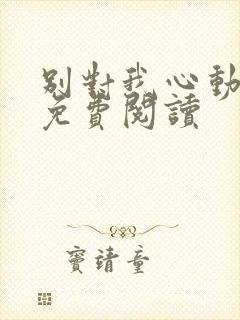 別對我心動
免費閱讀
竇靖童